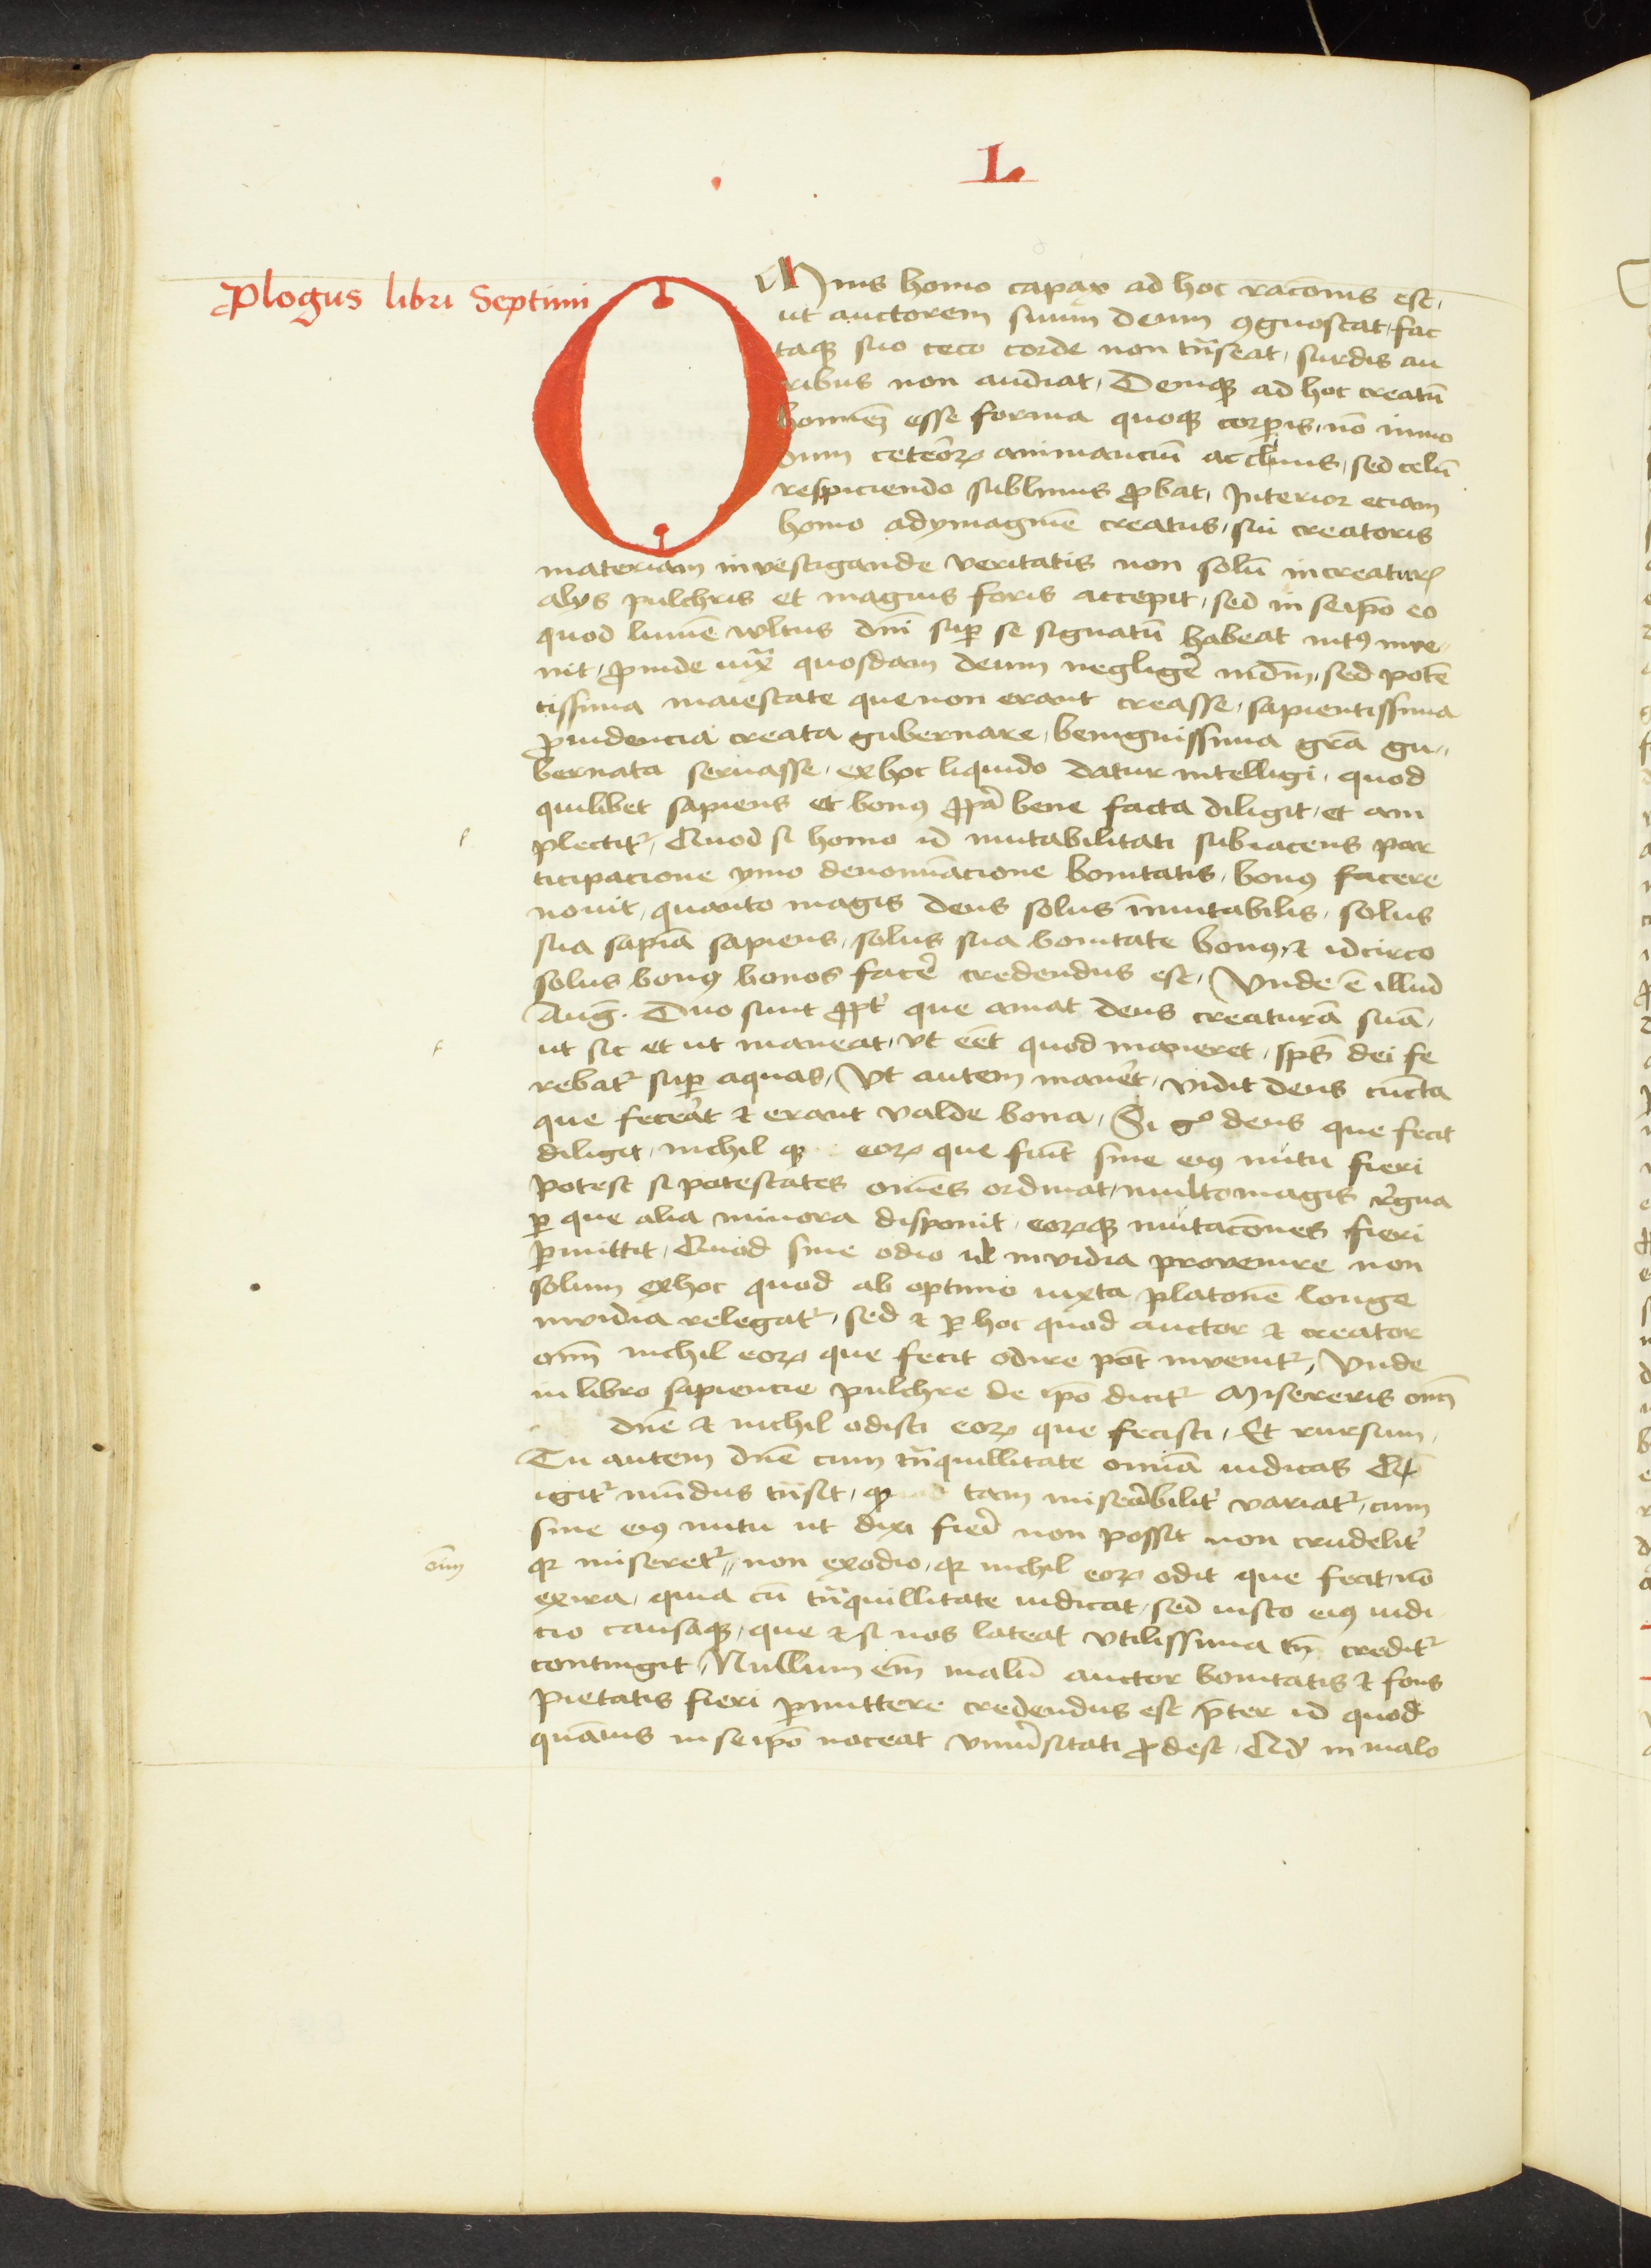 L
Plogus libri Septimi
OMnis homo capax ad hoc racōnis est,
ut auctorem suum deum ꝯgnoscat, fac
taqꝫ suo ceco corde non tn̄seat, surdis au
ribus non audiat, Deniqꝫ ad hoc creatū
hominē esse forma quoqꝫ corꝑis, nō inmo
dum ceteroꝝ animanciū acclinis, sed celū
respiciendo sublimis ꝓbat, Interior eciam
homo adymaginē creatus, sui creatoris
materiam investigande veritatis non solū increaturꝭ
alys pulchris et magnis foris accepit, sed in seipō eo
quod lumē vultus dn̄i suꝑ se signatū habeat intꝰ inve
nit, ꝓinde iuxᵃ quosdam deum negligē mūdū, sed potē
tissima maiestate que non erant creasse, sapientissima
ꝓuidencia creata gubernare, benignissima grā gu
bernata seruasse, ex hoc liquido datur intelligi, quod
quilibet sapiens et bonꝰ ꝓp̄a bene facta diligit, et am
plectit᷑, Quod si homo id mutabilitati subiacens par
ticipacione ymo denomīacione bonitatis, bonꝰ facere
nouit, quanto magis deus solus īmutabilis, solus
sua sapīa sapiens, solus sua bonitate bonꝰ, ⁊ idcirco
solus bonꝰ bonos facē credendus est, Vnde ē illud
Auḡ. Duo sunt ꝓpt̄ que amat deus creaturā suā,
ut sit et ut maneat, vt eēt quod maneret, sp̄s dei fe
rebat᷑ suꝑ aquas, Vt autem manēt, vidit deus cūcta
que fecēat ⁊ erant valde bona, Si gͦ deus que fecit
diligit, nichil qꝫ eoꝝ que fiūt sine eiꝰ nutu fieri
potest si potestates om̄es ordinat, multomagis r̄gna
ꝑ que alia minora disponit, eoꝝqꝫ mutacōnes fieri
ꝑmittit, Quod sine odio ul̄ invidia provenire non
solum exhoc quod ab optimo iuxta platonē longe
invidia relegat᷑, sed ⁊ ꝑ hoc quod auctor ⁊ creator
om̄ nichil eoꝝ que fecit odire pōt invenit᷑, Vnde
in libro sapiencie pulchre de ip̄o dicit᷑ Misereris om̄
dn̄e ⁊ nichil odisti eoꝝ que fecisti, Et rursum,
Tu autem dn̄e cum tn̄quillitate om̄ia iudicas Qꝫ
igit᷑ mūdus tn̄sit, quod tam misēabilit̄ variat᷑, cum
sine eiꝰ nutu ut dixi fieī non possit non crudelit̄
om̄
qꝛ miseret᷑, non exodio, qꝛ nichil eoꝝ odit que fecit, nō
exira, quia cū tn̄quillitate iudicat, sed iusto eiꝰ iudi
cio causaqꝫ, que ⁊ si nos lateat vtilissima tn̄ credit᷑
contingit, Nullum em̄ malū auctor bonitatis ⁊ fons
pietatis fieri ꝑmittere credendus est p̄ter id quod
quāuis in seipō noceat vniūsitati ꝓdest, Qd̄ in malo